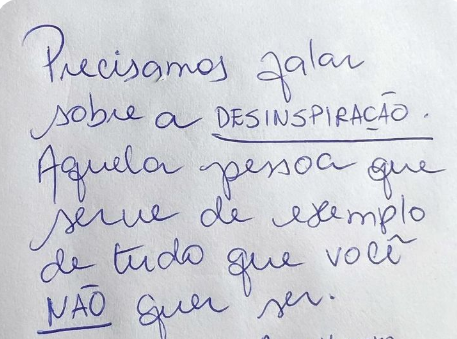 Precisamos falar
sobre a DESINSPIRAÇÃO.
Aquela pessoa que
serve de exemplo
de tudo que você
NÃO quer ser.